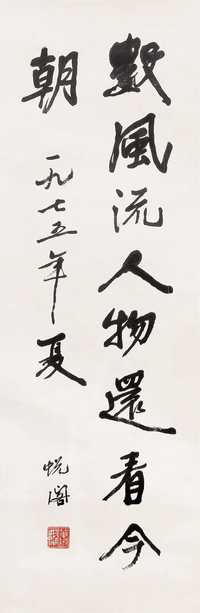 數風流人物還看今
朝
一九七五年夏
悅閣